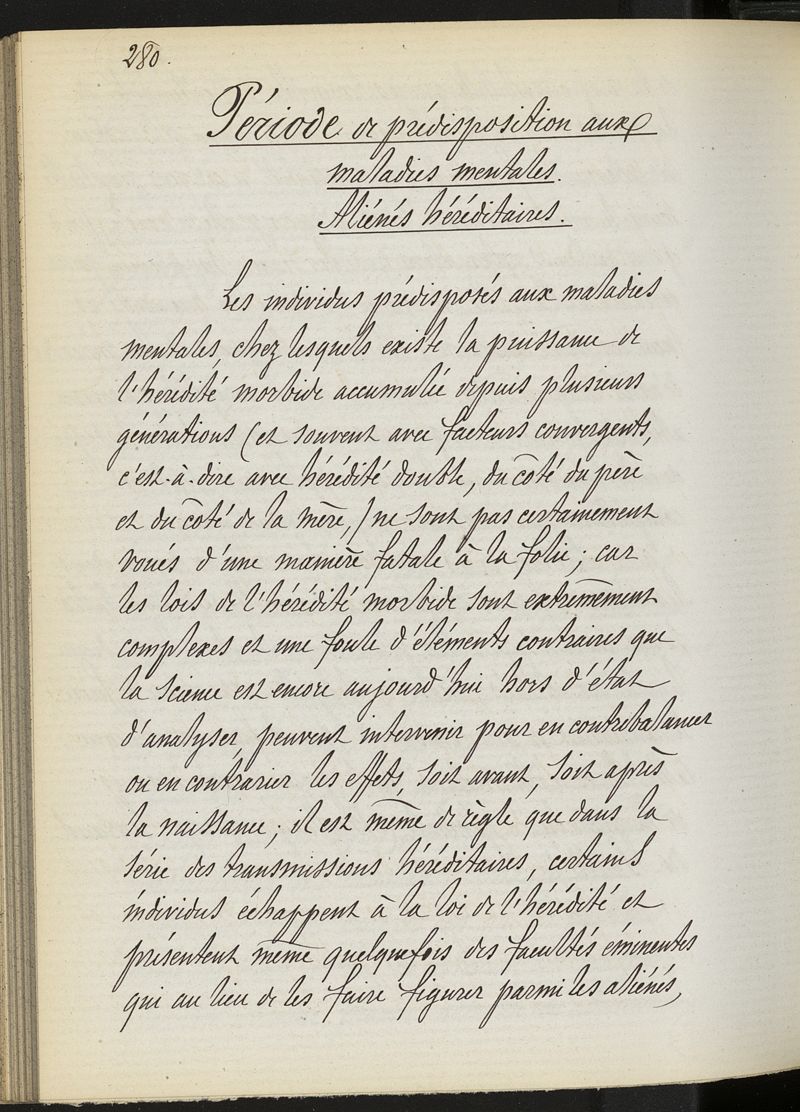 280.
Période de prédisposition aux
maladies mentales.
Aliénés héréditaires.
Les individus prédisposés aux maladies
mentales, chez lesquels existe la puissance de
l'hérédité morbide accumulée depuis plusieurs
générations (et souvent avec facteurs convergents,
c'est-à-dire avec hérédité double, du côté du père
et du côté de la mère,) ne sont pas certainement
voués d'une manière fatale à la folie; car
les lois de l'hérédité morbide sont extrêmement
complexes et une foule d'éléments contraires que
la science est encore aujourd'hui hors d'état
d'analyser, peuvent intervenir pour en contrebalancer
ou en contrarier les effets, soit avant, soit après
la naissance; il est même de règle que dans la
série des transmissions héréditaires, certains
individus échappent à la loi de l'hérédité et
présentent même quelquefois des facultés éminentes
qui au lieu de les faire figurer parmi les aliénés,